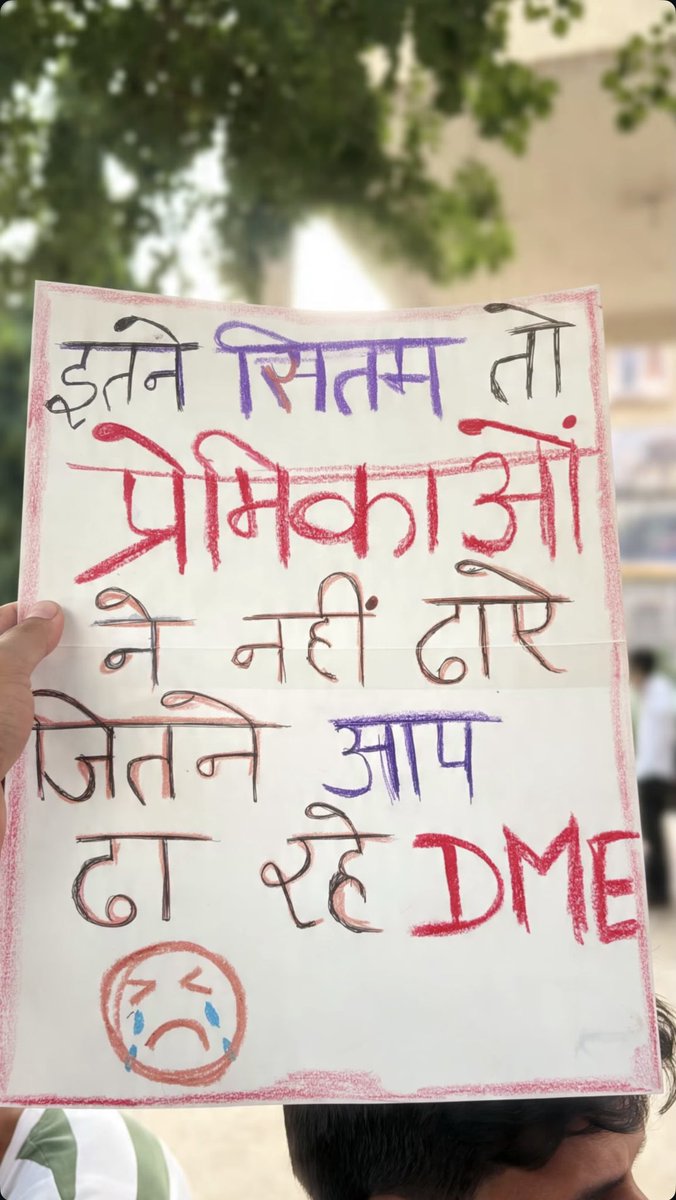 इतने सितम तो
प्रेमिकाओं
ने नहीं ढाऐ
जितने आप
ढा रहे DME